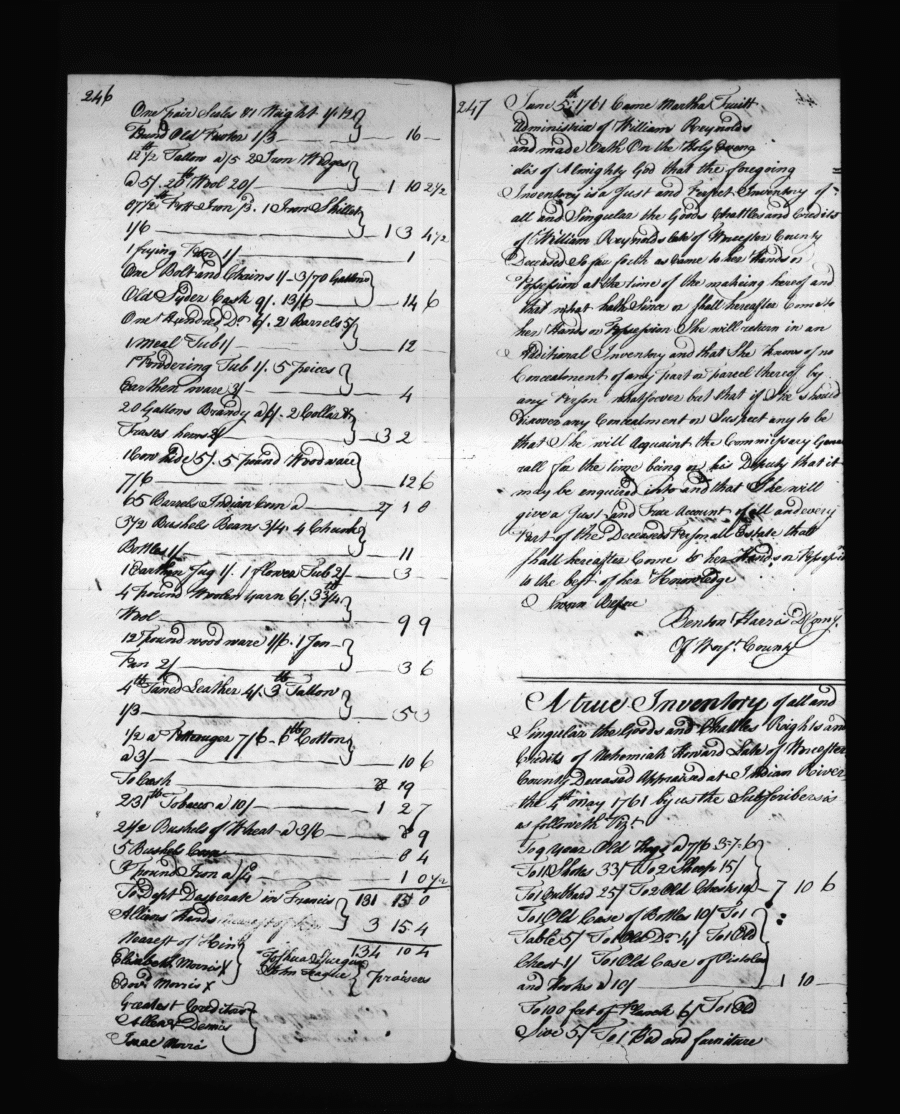 246
One pair Scales & Weight 1/ 12
Pound Old Pewter 1/3 16
12 1/2 Tallow a /5 2 Iron Wedges
a 5/. 20 th Wool 20/ 1 10 2 1/2
th Pott Iron /3. 1 Iron Skillet
1/6 1 3 4 1/2
1 frying Pan 1/ 1
One Bolt and Chains 1/ 3/70 Gallons
Old Syder Cask 9/. 13/6 14 6
One Hundred Do 6/. 2 Barrels 5/
1 Meal Tub 1/ 12
1 Powdering Tub 1/. 5 peices
Earthen ware 3/ 4
20 Gallons Brandy a 3/. 2 Collar &
hems 2/ 3 2
1 Cow hide 5/. 5 pound Wood ware
7/6 12 6
65 Barrels Indian Corn a 27 1 8
3 1/2 Bushels Beans 3/4. 4 Chunk
Bottles 1/ 11
1 Earthen Jug 1/. 1 flower Tub 2/ 3
4 pound Woolen Yarn 6/. 33 3/4 th
Wool 9 9
12 pound wood ware 1/6. 1
Pan 2/ 3 6
4 th Taned Leather 4/. 3 th Tallow
1/3 5 3
1/2 a Pettiauger 7/6 6 th Cotton
a 3/ 10 6
To Cash 8 19
231 th Tobacco a 10/ 1 2 7
2 1/2 Bushels of Wheat a 3/6 8 9
5 Bushels Corn 8 4
pound Iron a /4 1 0 1/2
To Dept Desperate in Francis 131 15 0
Allins Hands 3 15 4
Nearest of Kin 134 10 4
Elizabeth Morris X Joshua Sturgis
Dovd Morris X John Teague praisers
Greatest Creditors
Allen & Dennis
Isaac Morris
247
June 5th 1761 Came Martha Truitt
Administrix of William Reynolds
and made Oath On the Holy Evang
elis of Almighty God that the foregoing
Inventory is a Just and Perfect Inventory of
all and Singular the Goods Chattles and Credits
of William Reynolds late of Worcester County
Deceased So far forth as Came to her Hands or
Possession at the time of the makeing hereof and
that what hath Since or shall hereafter Come to
her Hands or Possession She will return in an
Additional Inventory and that She knows of no
Concealment of any part or parcel thereof by
any Person whatsoever but that if She should
Discover any Concealment or Suspect any to be
that She will Acquaint the Commissary Gene
rall for the time being or his Deputy that it
may be enquired into and that She will
give a Just and True Account of all and every
Part of the Deceaseds Personall Estate that
shall hereafter Come to her Hands or Possession
to the best of her Knowledge
Sworn Before
Benton Harris D Comy
Of Worsr. County
A true Inventory of all and
Singular the Goods and Chattles Rights and
Credits of Nehemiah Howard Late of Worcester
County Deceased Appraised at Indian River
the 4th may 1761 by us the Subscribers is
as followeth Vizt
To 9 year Old Hogs a 7/6 3=7=6
To 11 Shotes 33/ To 2 Sheep 15/
To 1 Cubbard 25/ To 2 Old Chests 10/ 7 10 6
To 1 Old Case of Bottles 10/ To 1
Table 5/ To 1 Old Do 4/ To 1 Old
Chest 1/ To 1 Old Case of Pistolls
and Hooks a 10/ 1 10
To 100 feet of Plank 6/ To 1 Old
Sive 5/ To 1 Bed and furniture